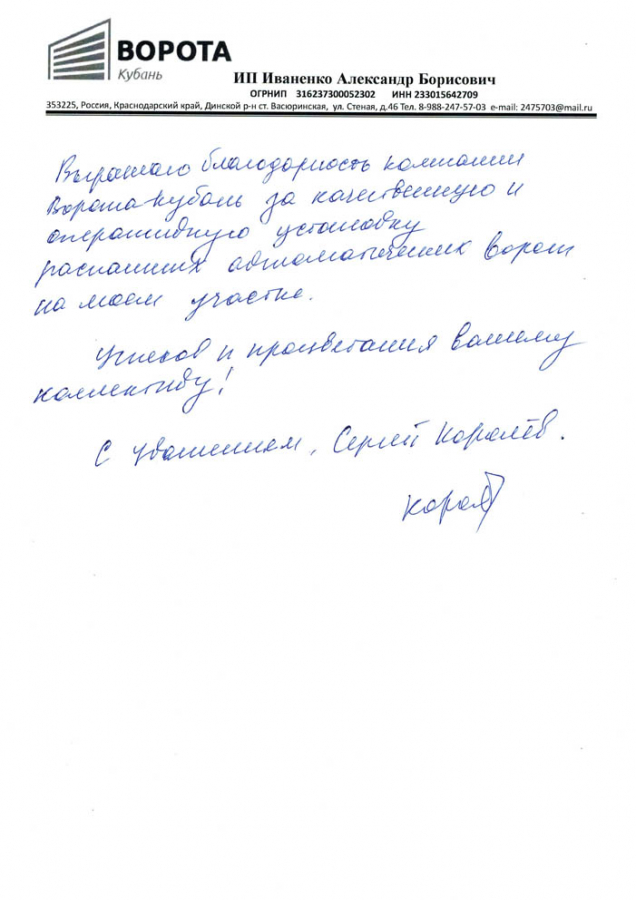 ВОРОТА
Кубань
ИП Иваненко Александр Борисович
ОГРНИП 316237300052302 ИНН 233015642709
353225, Россия, Краснодарский край, Динской р-н ст. Васюринская, ул. Стеная, д.46 Тел. 8-988-247-57-03 e-mail: 2475703@mail.ru
Выражаю благодарность компании
Ворота Кубань за качественную и
оперативную установку
распашных автоматических ворот
на моем участке.
Успехов и процветания вашему
коллективу!
С уважением, Сергей Королёв.